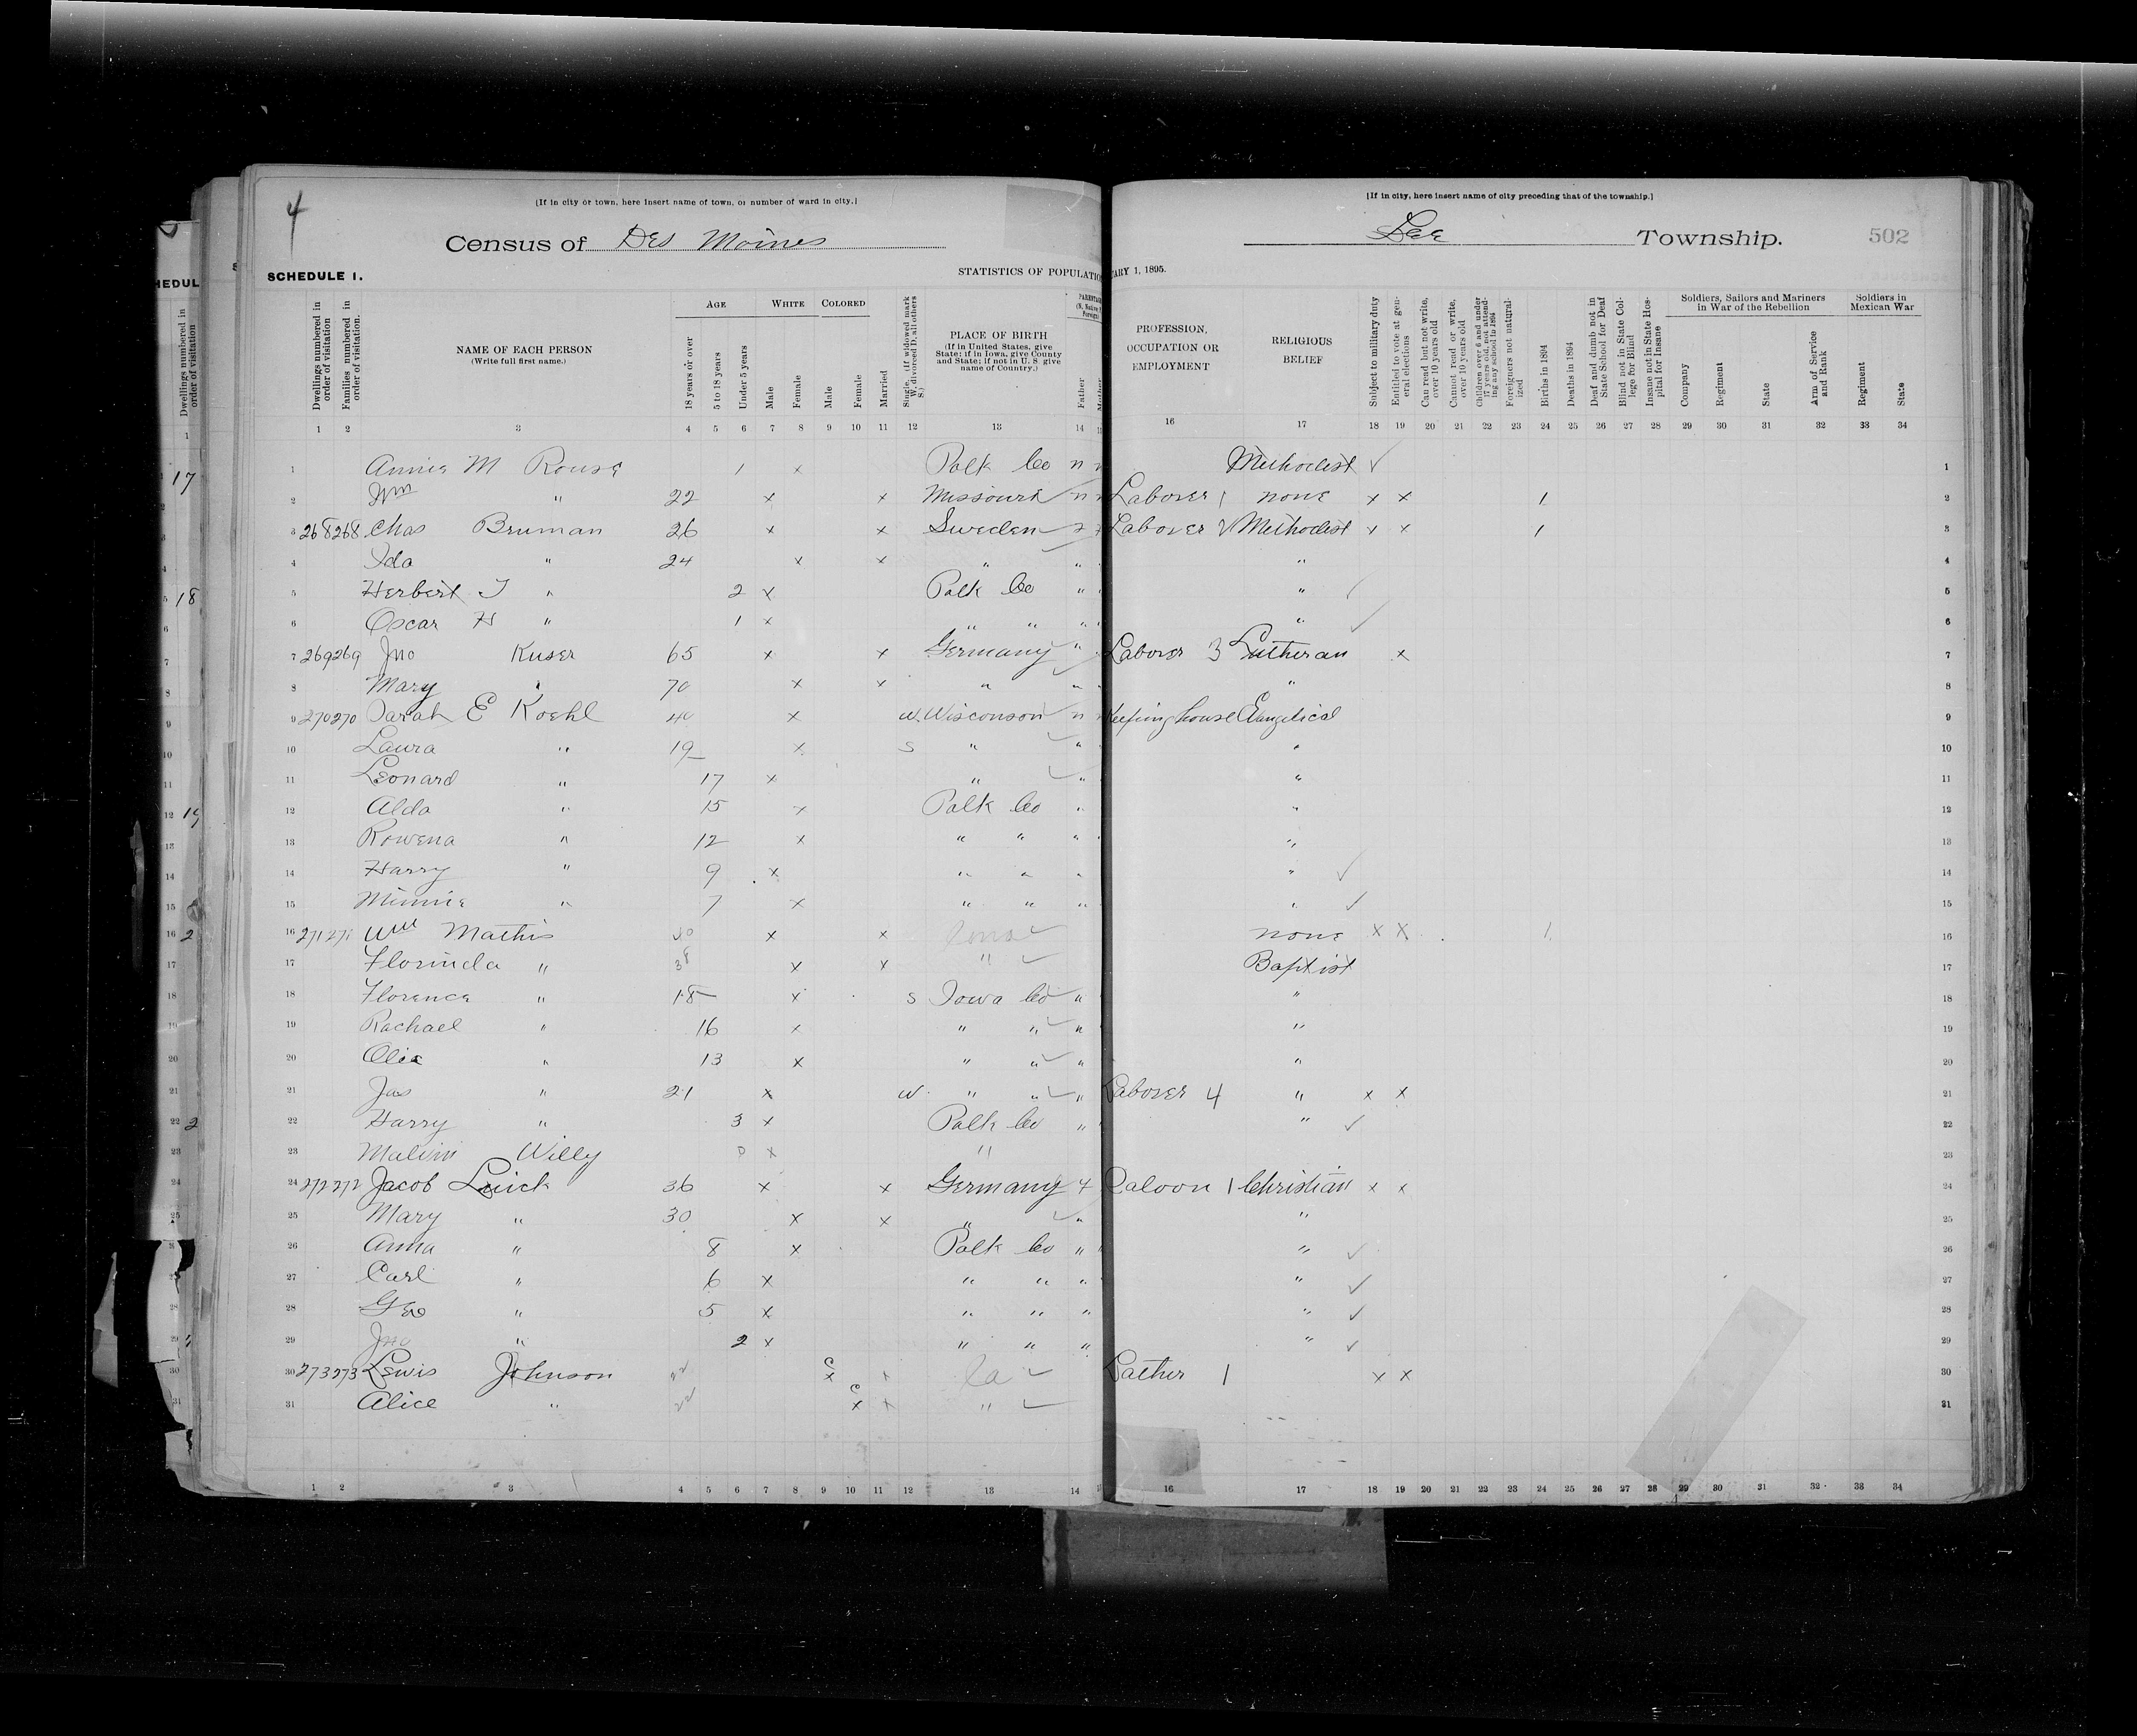 4
[If in city or town, here insert name of town, or number of ward in city.]
Census of Des Moines
SCHEDULE 1.
STATISTICS OF POPULATIO
[If in city, here insert name of city preceding that of the township.]
Lee Township. 502
ARY 1, 1895.
HEDUL
Dwellings numbered in order of visitation
Dwellings numbered in order of visitation
Families numbered in order of visitation.
NAME OF EACH PERSON
(Write full first name.)
AGE WHITE COLORED
18 years or over
5 to 18 years
Under 5 years
Male
Female
Male
Female
Married
Single. (If widowed mark W, divorced D, all others S.)
PLACE OF BIRTH
(If in United States, give State; if in Iowa, give County and State; if not in U. S. give name of Country.)
Father
PROFESSION, OCCUPATION OR EMPLOYMENT
RELIGIOUS BELIEF
Subject to military duty
Entitled to vote at general elections
Can read but not write, over 10 years old
Cannot read or write, over 10 years old
Children over 6 and under 17 years old, not attending any school in 1894
Foreigners not naturalized
Births in 1894
Deaths in 1894
Deaf and dumb not in State School for Deaf
Blind not in State College for Blind
Insane not in State Hospital for Insane
Soldiers, Sailors and Mariners in War of the Rebellion
Company
Regiment
State
Arm of Service and Rank
Soldiers in Mexican War
Regiment
State
1 2 3 4 5 6 7 8 9 10 11 12 13 14 16 17 18 19 20 21 22 23 24 25 26 27 28 29 30 31 32 33 34
1 Annie M Rouse 1 x Polk Co n Methodist ✓ 1
2 Wm " 22 x x Missouri n Laborer 1 none x x 1 2
3 268 268 Chas Bruman 26 x x Sweden Laborer 2 Methodist x x 1 3
4 Ida " 24 x x " " " 4
5 Herbert J " 2 x Polk Co " " ✓ 5
6 Oscar H " 1 x " " " " ✓ 6
7 269 269 Jno Kuser 65 x x Germany " Laborer 3 Lutheran x 7
8 Mary " 70 x x " " " 8
9 270 270 Sarah E Koehl 40 x W. Wisconson n Keeping house Evangelical 9
10 Laura " 19 x S " " " 10
11 Leonard " 17 x " " " 11
12 Alda " 15 x Polk Co " " 12
13 Rowena " 12 x " " " " 13
14 Harry " 9 x " " " " ✓ 14
15 Minnie " 7 x " " " " ✓ 15
16 271 271 Wm Mathis 40 x x Iowa none x x 1 16
17 Florinda " 38 x x " Baptist 17
18 Florence " 18 x S Iowa Co " " 18
19 Rachael " 16 x " " " " 19
20 Olie " 13 x " " " " 20
21 Jas " 21 x W " " " Laborer 4 " x x 21
22 Harry " 3 x Polk Co " " ✓ 22
23 Malvin Willy 0 x " 23
24 272 272 Jacob Luick 36 x x Germany 4 Saloon 1 Christian x x 24
25 Mary " 30 x x " " " 25
26 Anna " 8 x Polk Co " " ✓ 26
27 Carl " 6 x " " " " ✓ 27
28 Geo " 5 x " " " " ✓ 28
29 Jno " 2 x " " " " ✓ 29
30 273 273 Lewis Johnson 22 c x x Ia Lather 1 x x 30
31 Alice " 22 c x x " 31
1 2 3 4 5 6 7 8 9 10 11 12 13 14 16 17 18 19 20 21 22 23 24 25 26 27 28 29 30 31 32 33 34